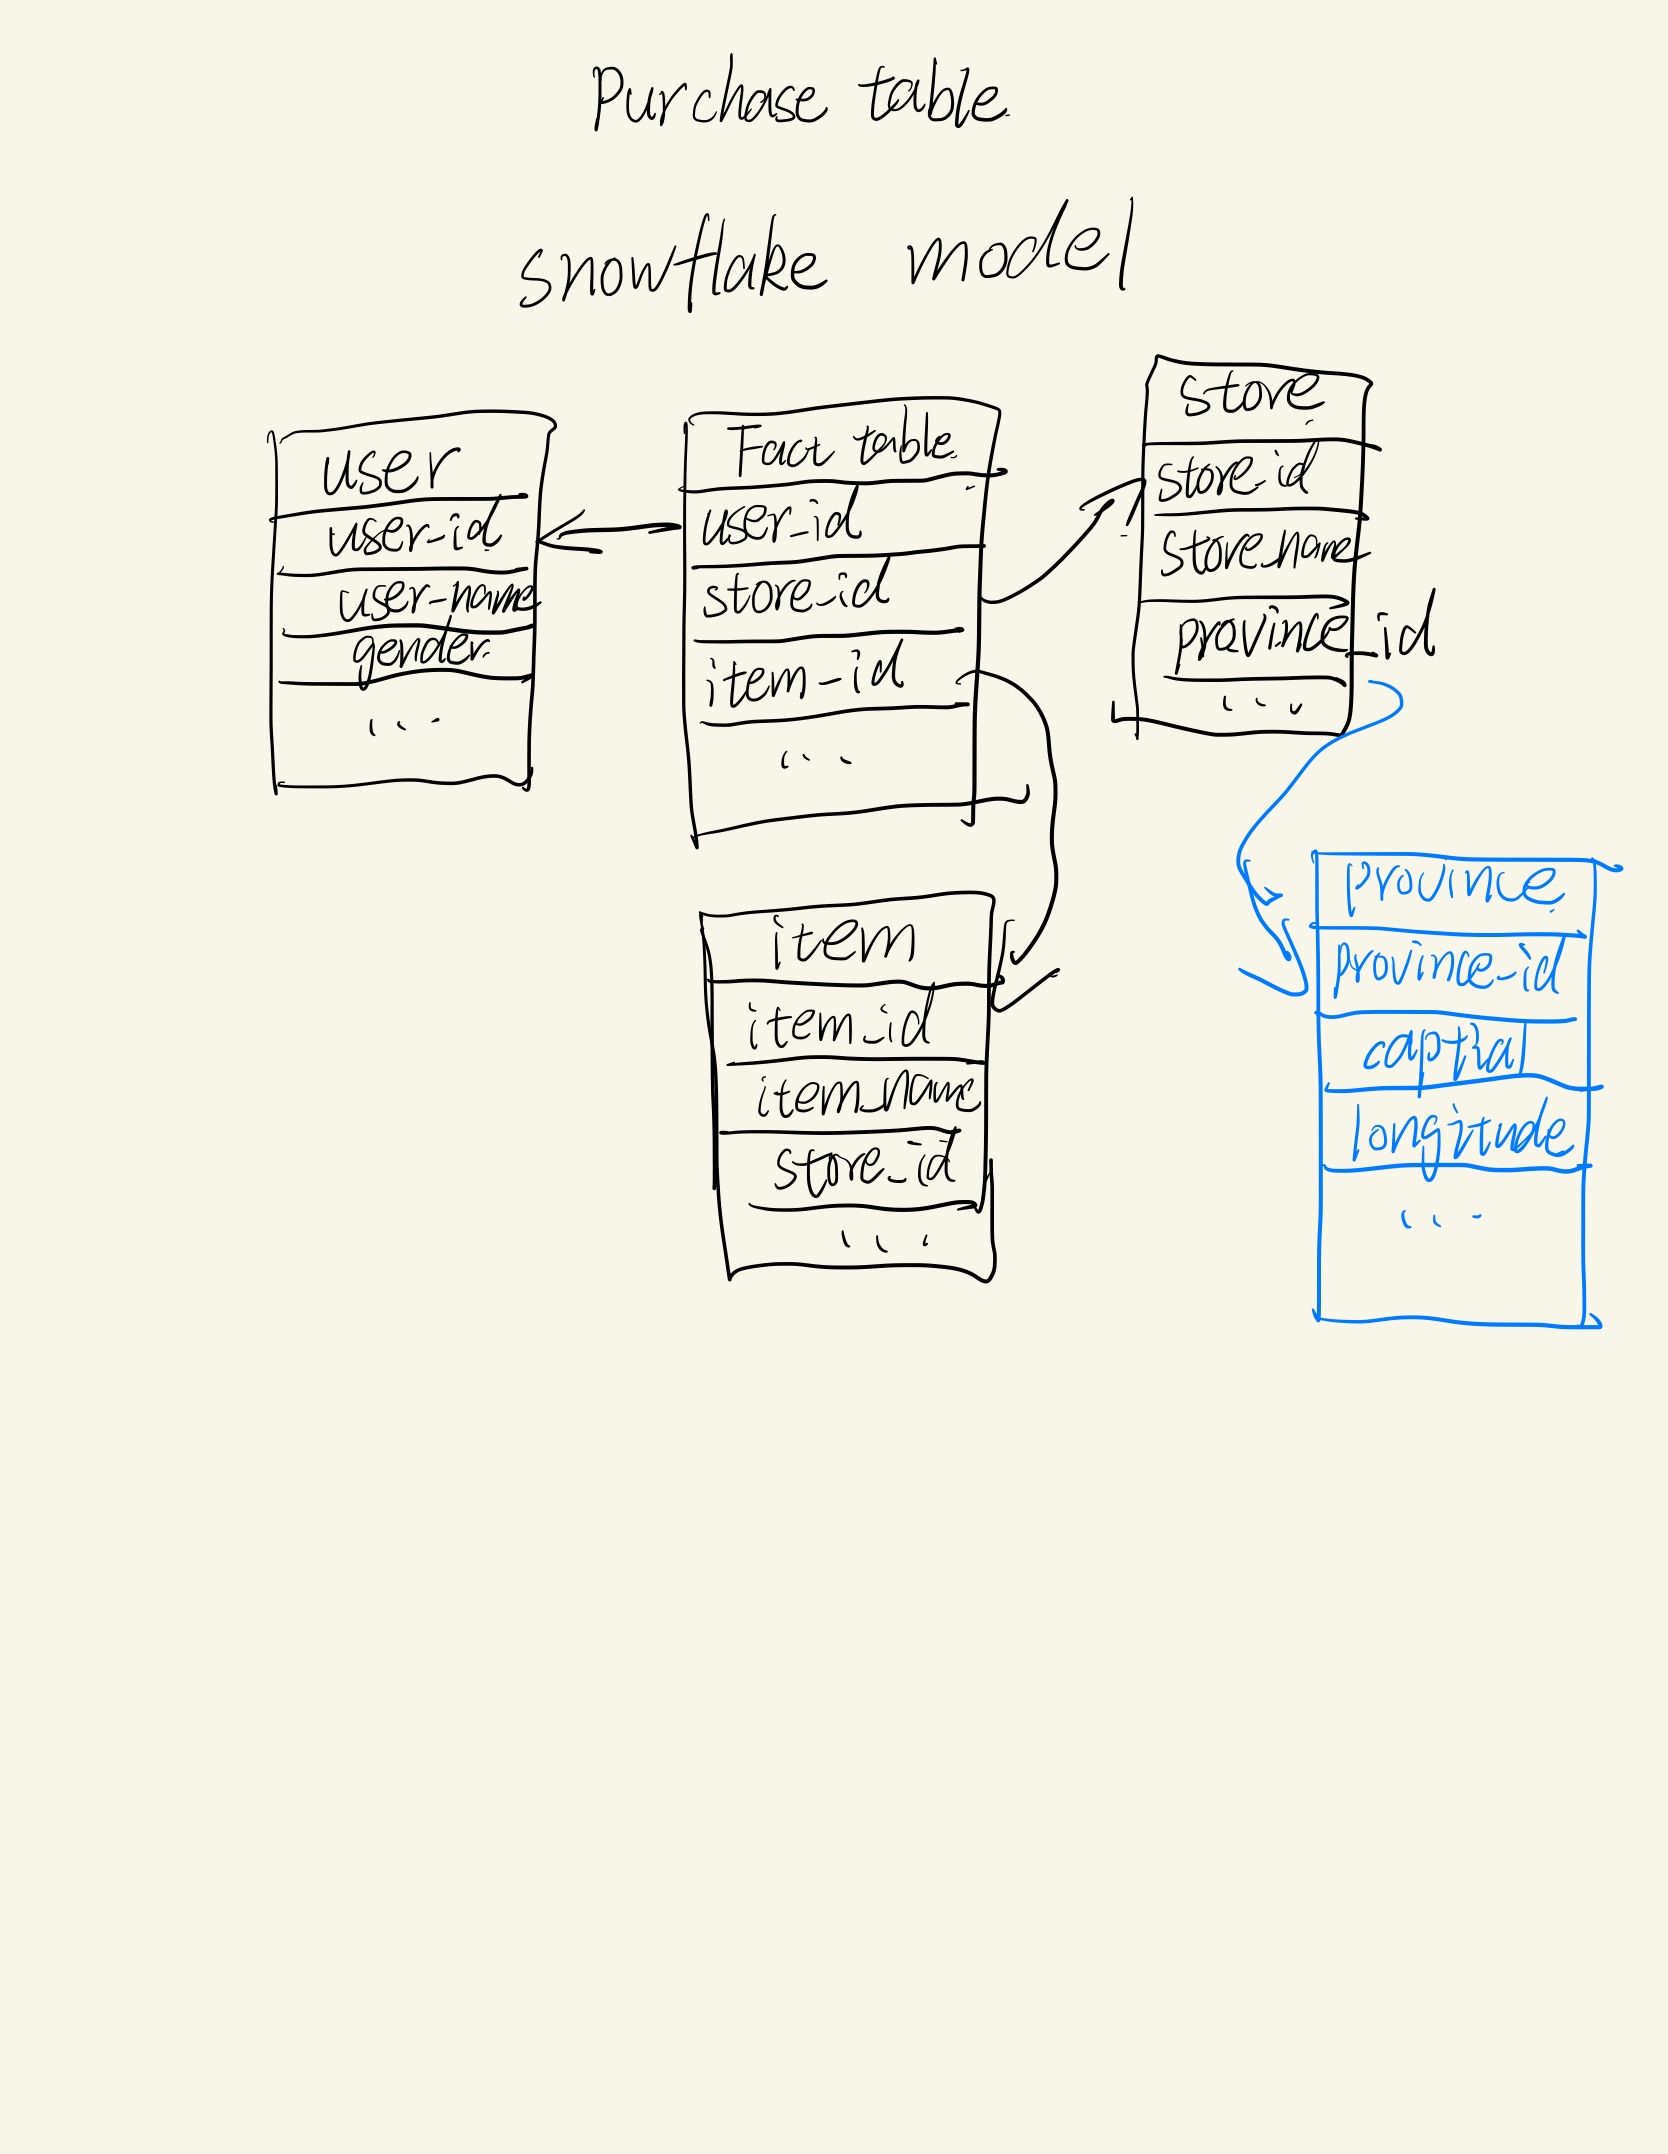 Purchase table
snowflake model
user
user_id
user_name
gender
...
Fact table
user_id
store_id
item_id
...
store
store_id
store_name
province_id
...
item
item_id
item_name
store_id
...
province
province_id
longitude
...